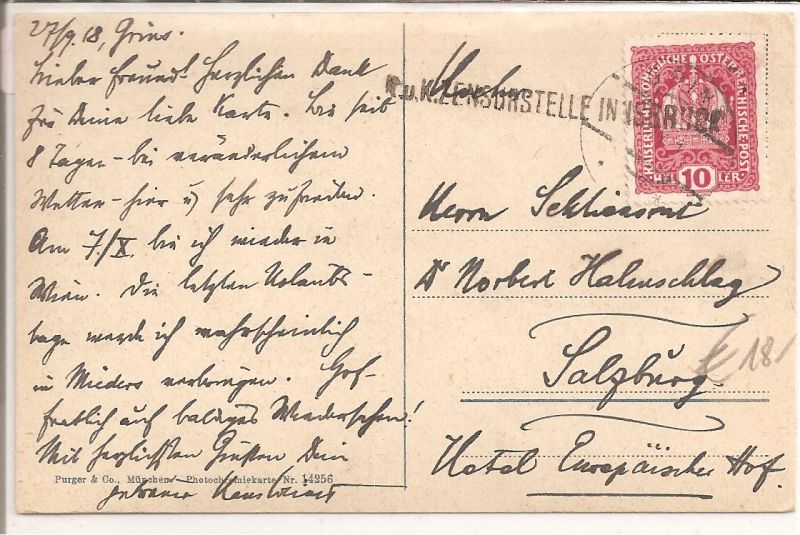 27/9.18, Gries.
Lieber Freund! Herzlichen Dank
für Deine liebe Karte. Bin seit
8 Tagen – bei veränderlichem
Wetter – hier u. sehr zufrieden.
Am 7./X. bin ich wieder in
Wien. Die letzten Urlaubs-
tage werde ich wahrscheinlich
in Mieders verbringen. Hof-
fentlich auf baldiges Wiedersehen!
Mit herzlichsten Grüßen Dein
getreuer
Purger & Co., München Photochromiekarte Nr. 14256
K.u.K. ZENSURSTELLE INNSBRUCK
KAISERLICHE KÖNIGLICHE ÖSTERREICHISCHE POST
HELLER 10
Herrn
Dr Norbert Halmschlag
Salzburg
Hotel Europäischer Hof.
18